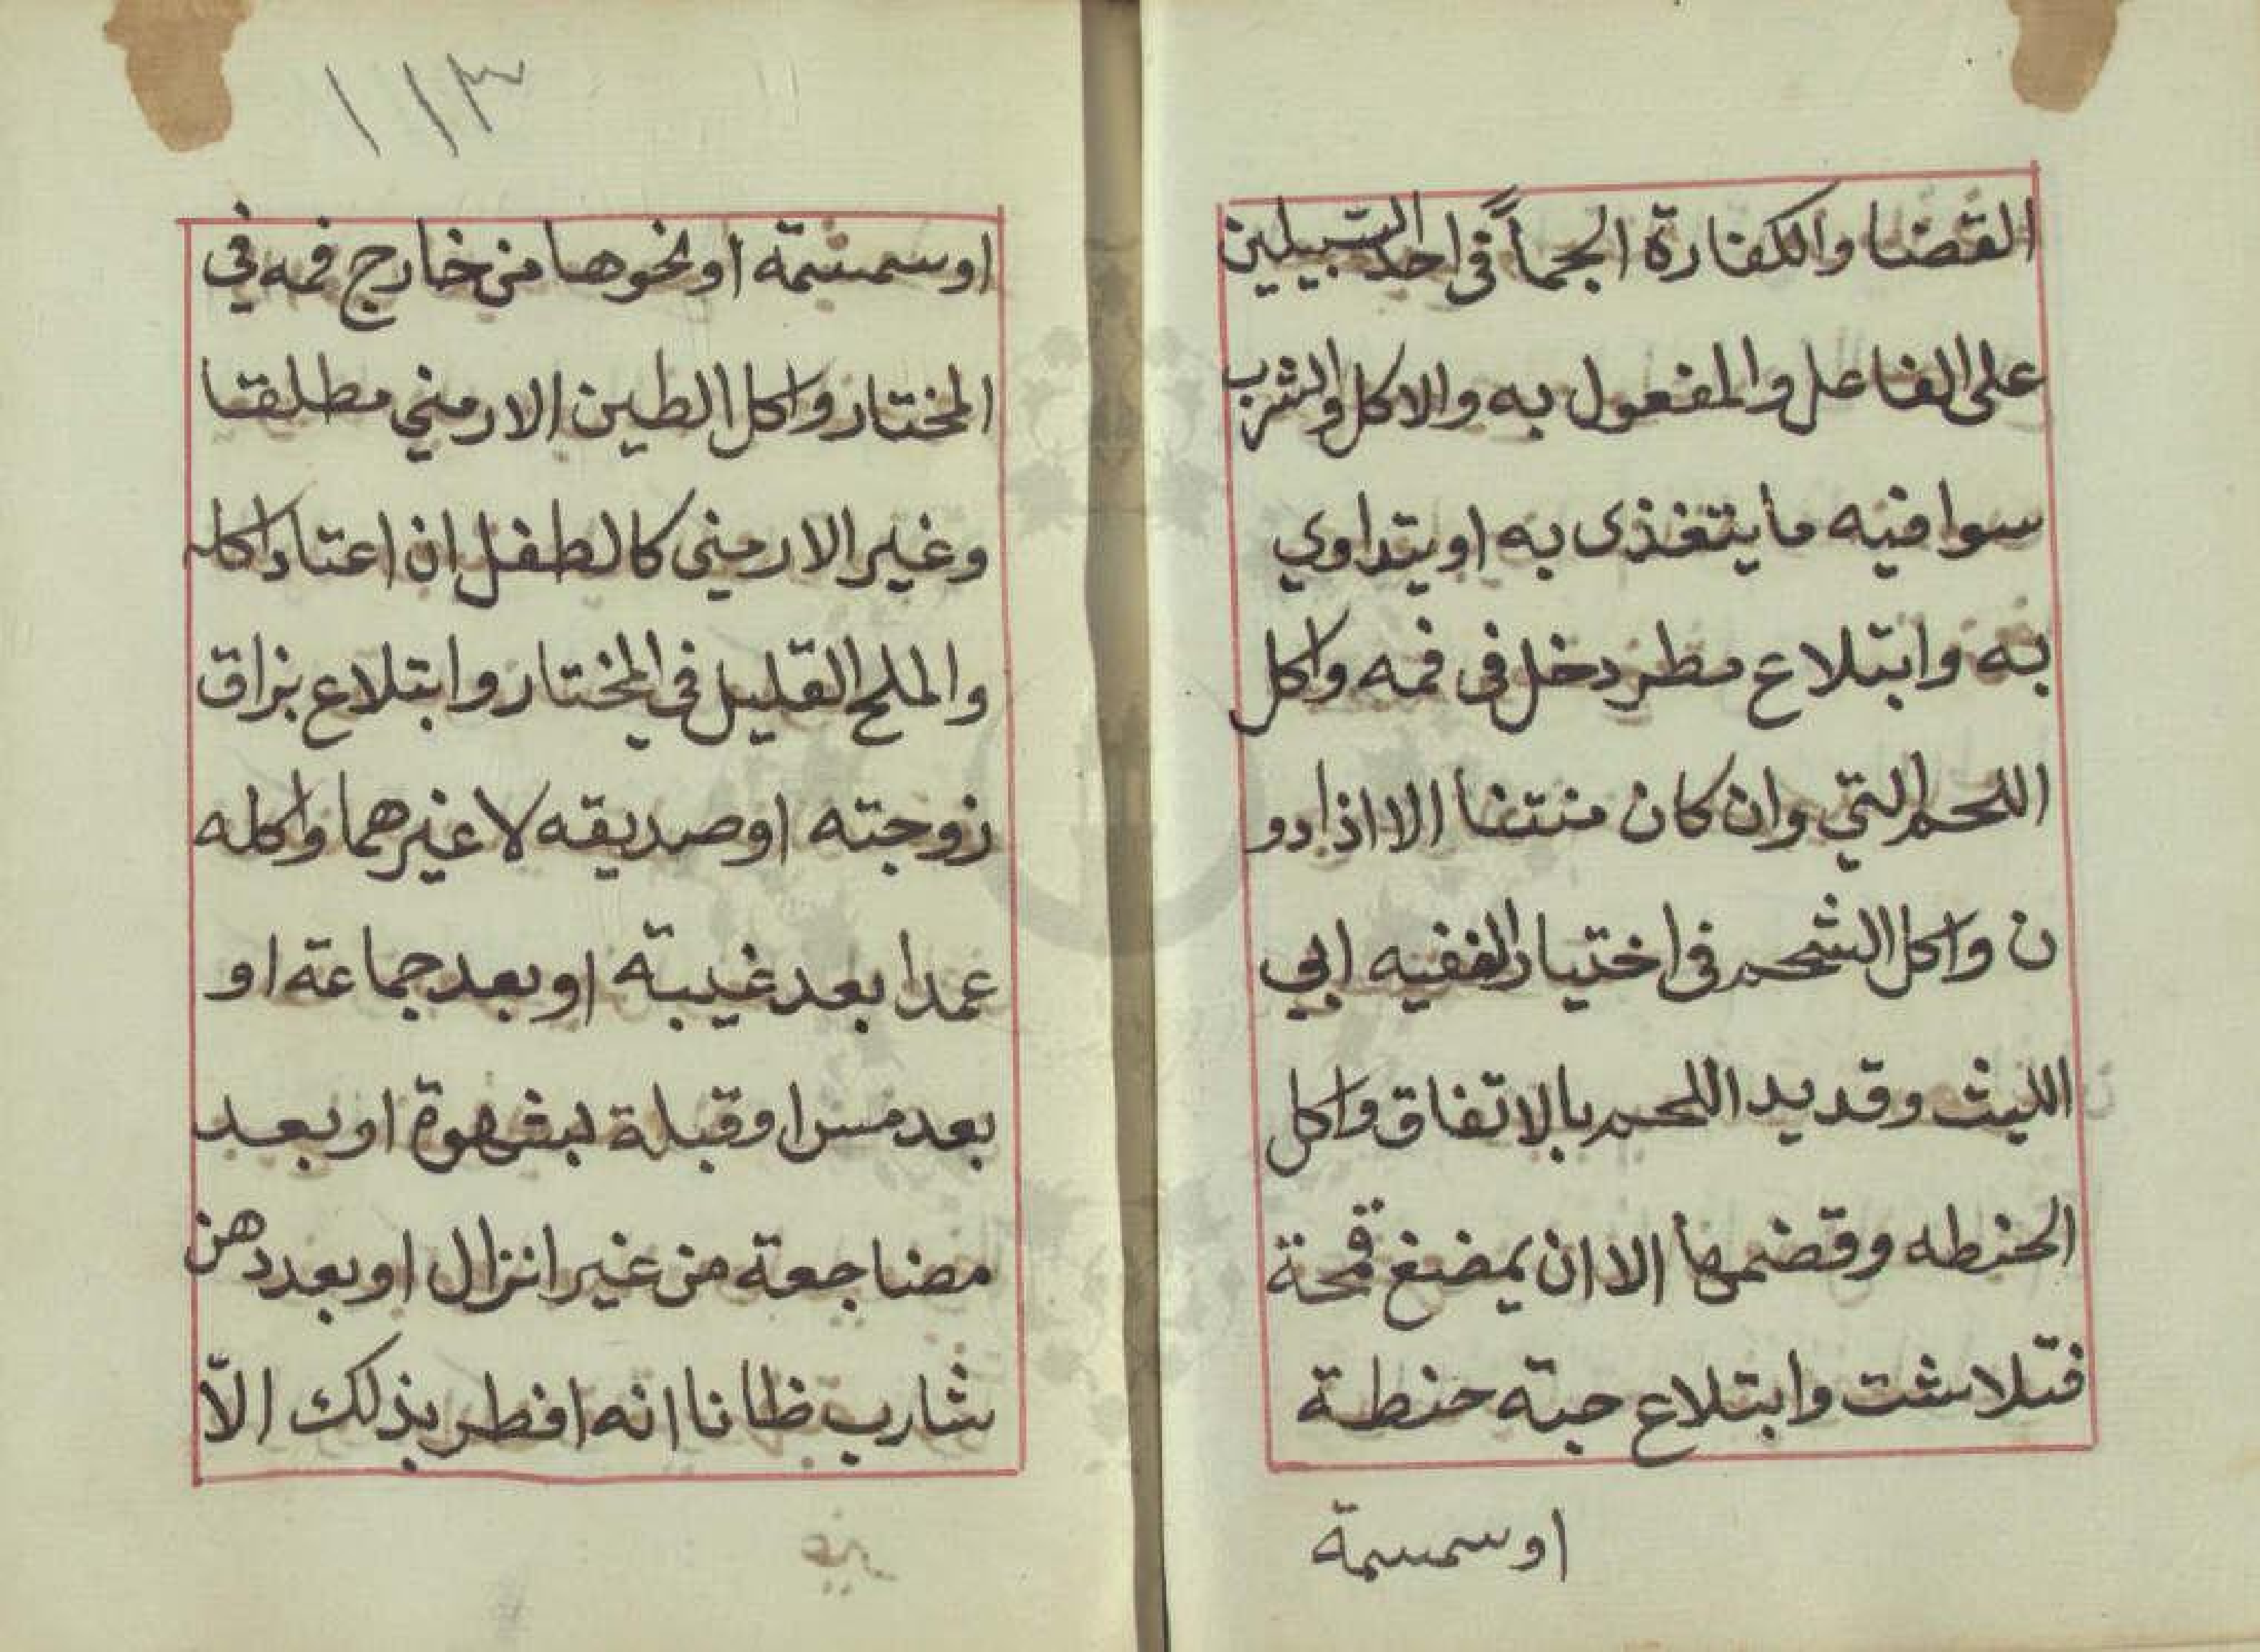 القضا والكفارة الجماً في احد السبيلين
على الفاعل والمفعول به والاكل والشرب
سوا فيه ما يتغذى به او يتداوي
به وابتلاع مطر دخل في فمه واكل
اللحم التي وان كان منتنا الا اذا دو
ن واكل الشحم في اختيار الفقيه ابي
الليث وقديد اللحم بالاتفاق واكل
الحنطه وقضمها الا ان يمضغ قمحة
فتلاشت وابتلاع حبة حنطة
او سمسمة
١١٣
او سمسمة او نحوها من خارج فمه في
المختار واكل الطين الارمني مطلقا
وغير الارمني كالطفل ان اعتاد اكله
والملح القليل في المختار وابتلاع بزاق
زوجته او صديقه لا غيرهما واكله
عمدا بعد غيبة او بعد جماعة او
بعد مس او قبلة بشهوة او بعد
مضاجعة من غير انزال او بعد دهن
شارب ظانا انه افطر بذلك الاّ